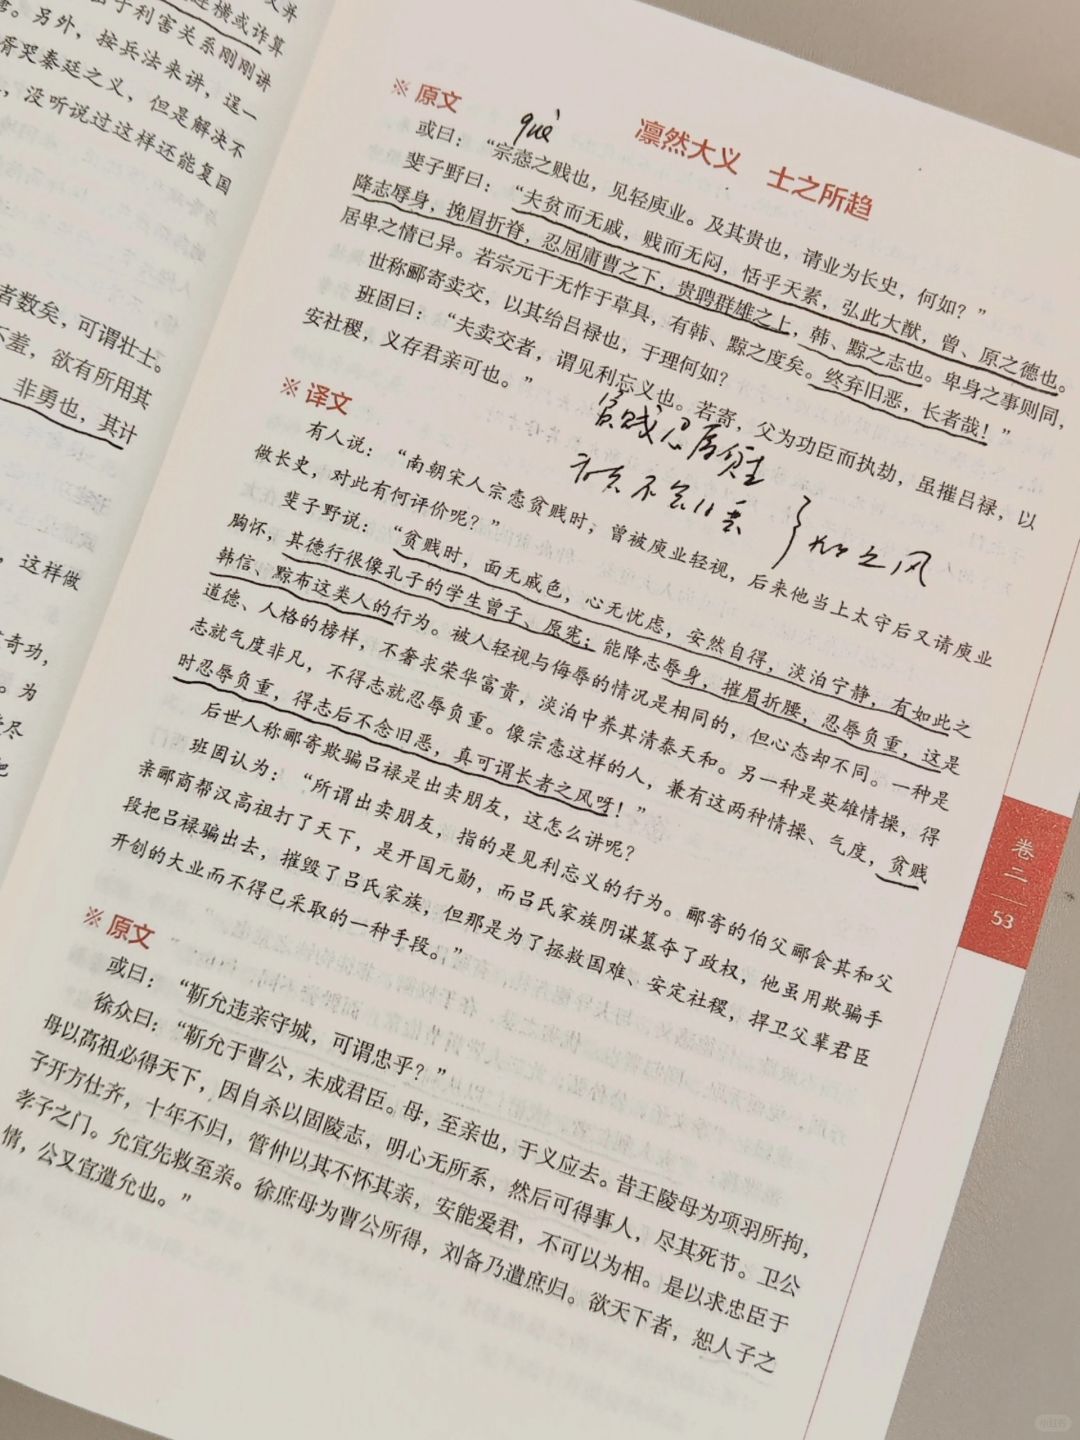 连横或诈算
于利害关系刚刚讲
。另外，按兵法来讲，逞一
胥哭秦廷之义，但是解决不
，没听说过这样还能复国
者数矣，可谓壮士。
不羞，欲有所用其
非勇也，其计
，这样做
奇功，
。为
尽
把
凛然大义 士之所趋
※ 原文
què
或曰：“宗悫之贱也，见轻庾业。及其贵也，请业为长史，何如？”
斐子野曰：“夫贫而无戚，贱而无闷，恬乎天素，弘此大猷，曾、原之德也。
降志辱身，挽眉折脊，忍屈庸曹之下，贵骋群雄之上，韩、黥之志也。卑身之事则同，
居卑之情已异。若宗元干无怍于草具，有韩、黥之度矣。终弃旧恶，长者哉！”
世称郦寄卖交，以其绐吕禄也，于理何如？
班固曰：“夫卖交者，谓见利忘义也。若寄，父为功臣而执劫，虽摧吕禄，以
安社稷，义存君亲可也。”
贫贱忍辱负重
不念旧恶
之风
※ 译文
有人说：“南朝宋人宗悫贫贱时，曾被庾业轻视，后来他当上太守后又请庾业
做长史，对此有何评价呢？”
斐子野说：“贫贱时，面无戚色，心无忧虑，安然自得，淡泊宁静，有如此之
胸怀，其德行很像孔子的学生曾子、原宪；能降志辱身，摧眉折腰，忍辱负重，这是
韩信、黥布这类人的行为。被人轻视与侮辱的情况是相同的，但心态却不同。一种是
道德、人格的榜样，不奢求荣华富贵，淡泊中养其清泰天和。另一种是英雄情操，得
志就气度非凡，不得志就忍辱负重。像宗悫这样的人，兼有这两种情操、气度，贫贱
时忍辱负重，得志后不念旧恶，真可谓长者之风呀！”
后世人称郦寄欺骗吕禄是出卖朋友，这怎么讲呢？
班固认为：“所谓出卖朋友，指的是见利忘义的行为。郦寄的伯父郦食其和父
亲郦商帮汉高祖打了天下，是开国元勋，而吕氏家族阴谋篡夺了政权，他虽用欺骗手
段把吕禄骗出去，摧毁了吕氏家族，但那是为了拯救国难、安定社稷，捍卫父辈君臣
开创的大业而不得已采取的一种手段。”
※ 原文
或曰：“靳允违亲守城，可谓忠乎？”
徐众曰：“靳允于曹公，未成君臣。母，至亲也，于义应去。昔王陵母为项羽所拘，
母以高祖必得天下，因自杀以固陵志，明心无所系，然后可得事人，尽其死节。卫公
子开方仕齐，十年不归，管仲以其不怀其亲，安能爱君，不可以为相。是以求忠臣于
孝子之门。允宜先救至亲。徐庶母为曹公所得，刘备乃遣庶归。欲天下者，恕人子之
情，公又宜遣允也。”
卷二
53
小红书